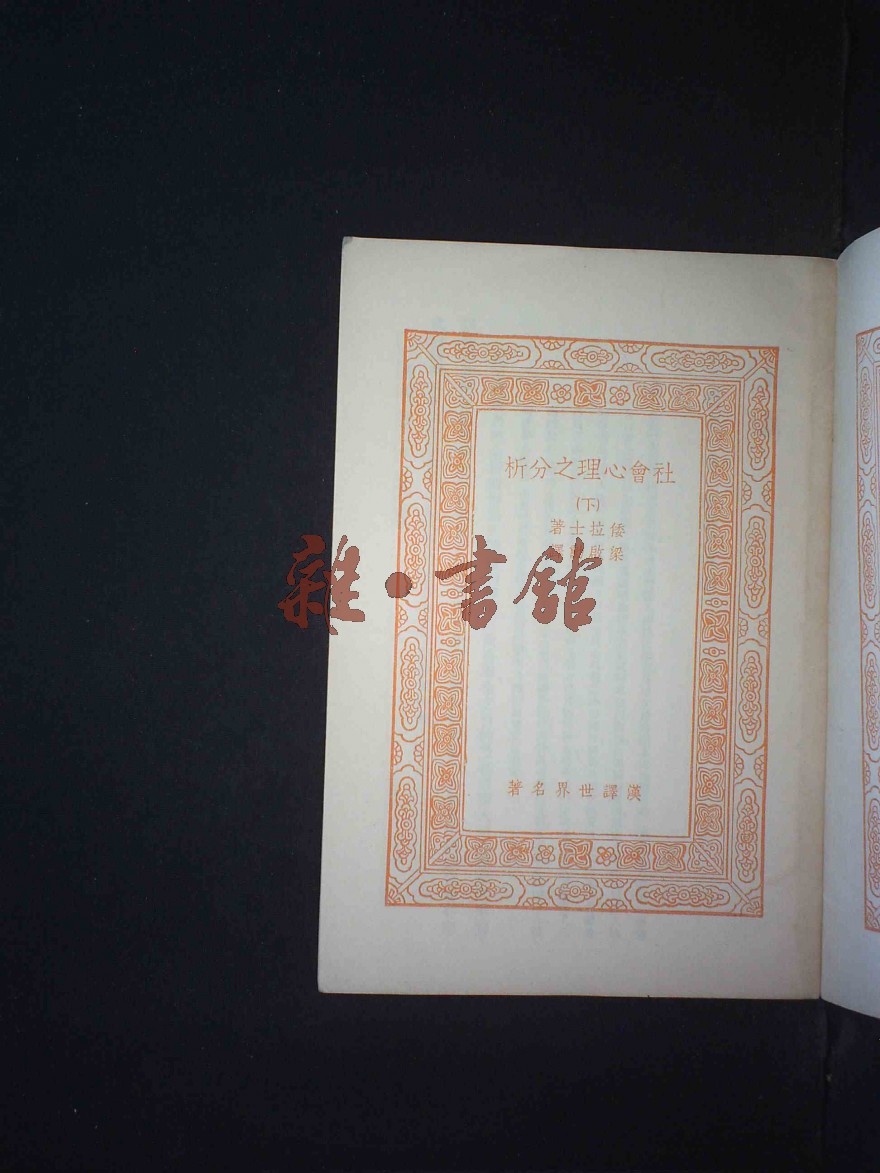 社會心理之分析
(下)
倭拉士著
梁啟
漢譯世界名著
雜·書館